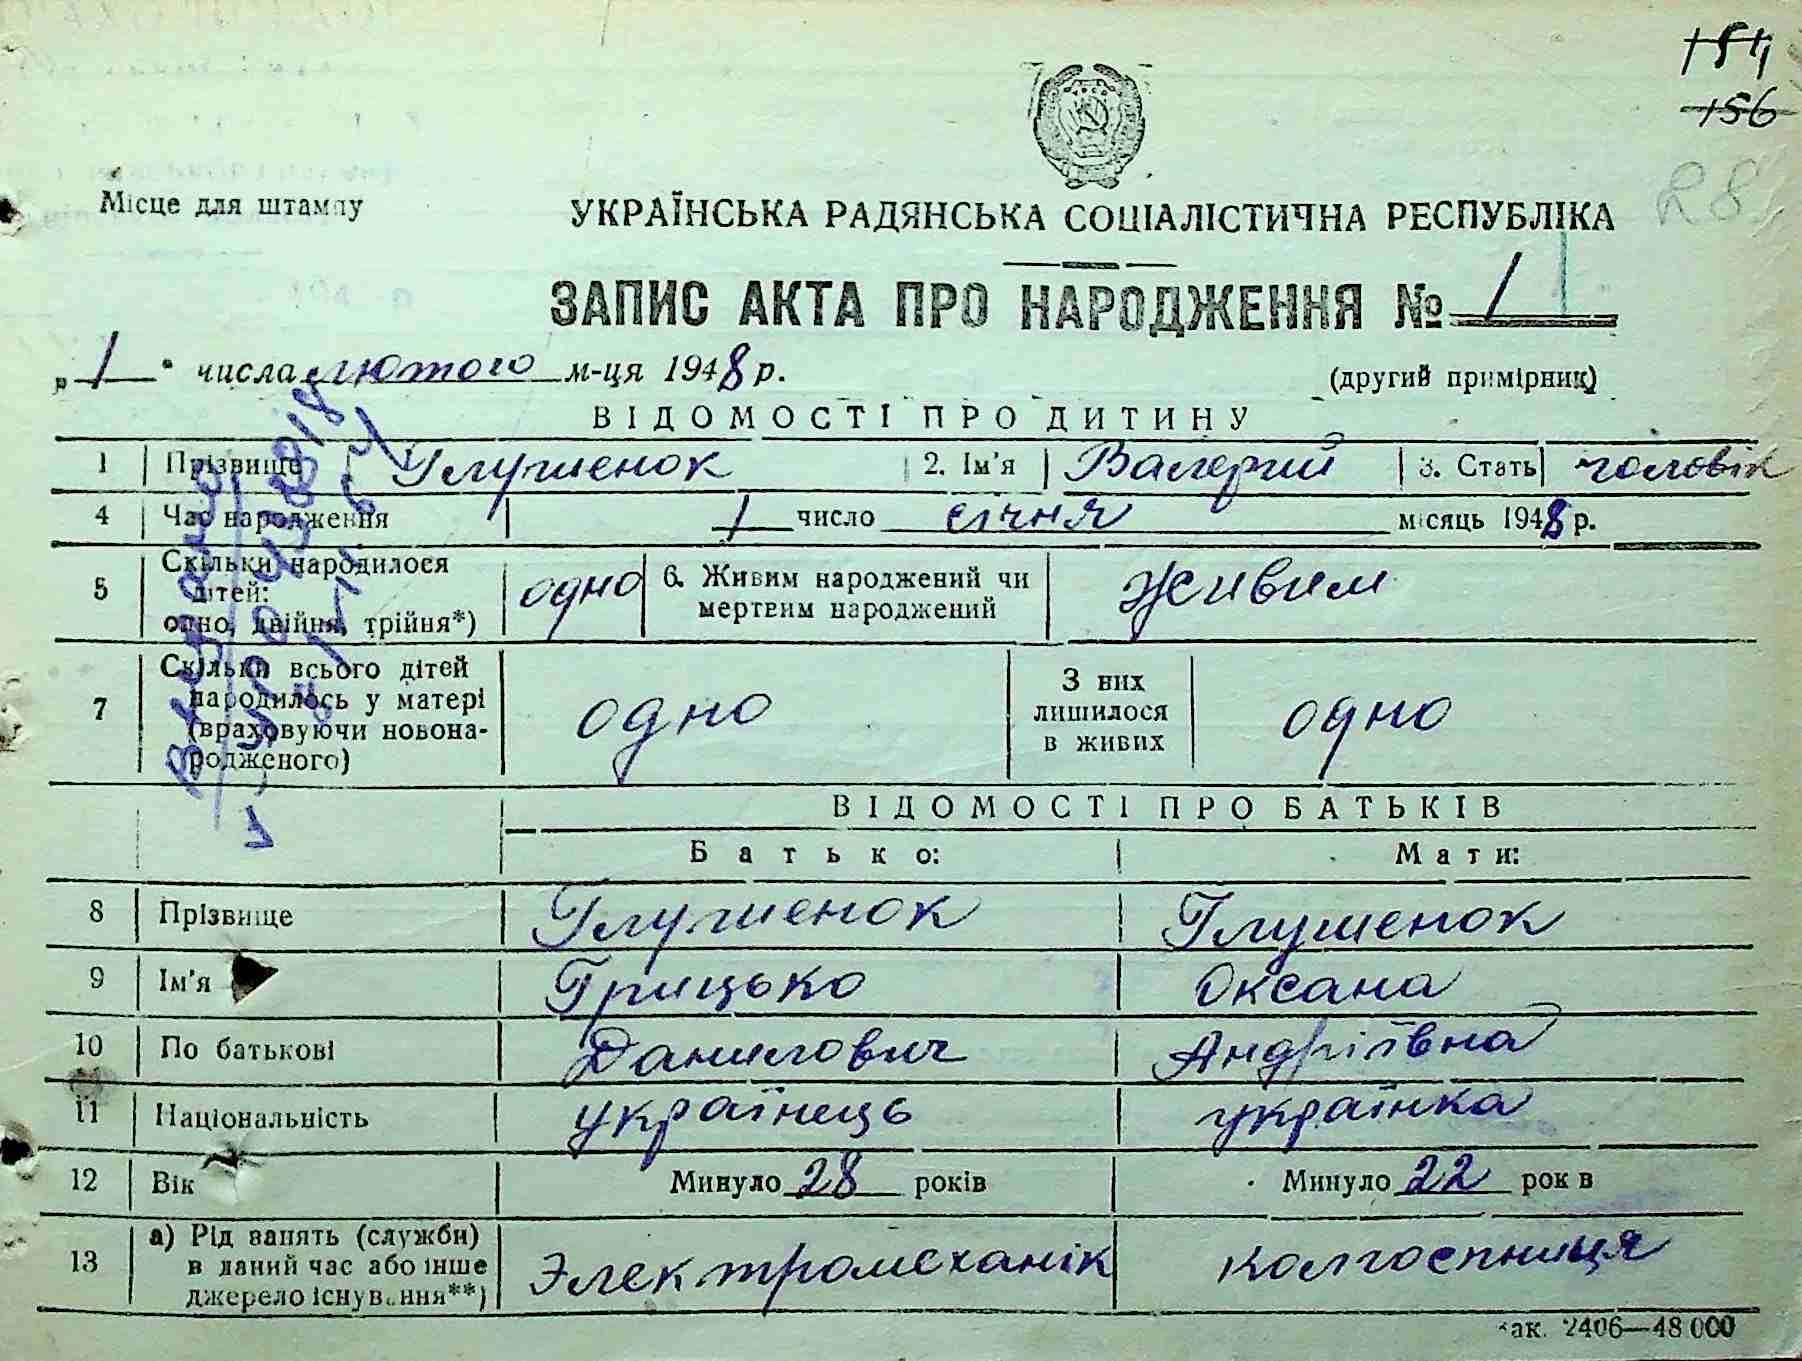 154
156
28
Місце для штампу
УКРАЇНСЬКА РАДЯНСЬКА СОЦІАЛІСТИЧНА РЕСПУБЛІКА
ЗАПИС АКТА ПРО НАРОДЖЕННЯ № 1
„1" числа лютого м-ця 1948 р.
(другий примірник)
ВІДОМОСТІ ПРО ДИТИНУ
1 Прізвище Глушенок 2. Ім'я Валерий 3. Стать чоловік
4 Час народження 1 число січня місяць 1948 р.
5 Скільки народилося дітей: одно, двійня, трійня*) одно 6. Живим народжений чи мертвим народжений Живим
7 Скільки всього дітей народилось у матері (враховуючи новонародженого) одно З них лишилося в живих одно
ВІДОМОСТІ ПРО БАТЬКІВ
Батько: Мати:
8 Прізвище Глушенок Глушенок
9 Ім'я Грицько Оксана
10 По батькові Данилович Андріївна
11 Національність українець українка
12 Вік Минуло 28 років Минуло 22 рок в
13 а) Рід занять (служби) в даний час або інше джерело існування**) Электромеханік колгоспниця
Зак. 2406—48 000